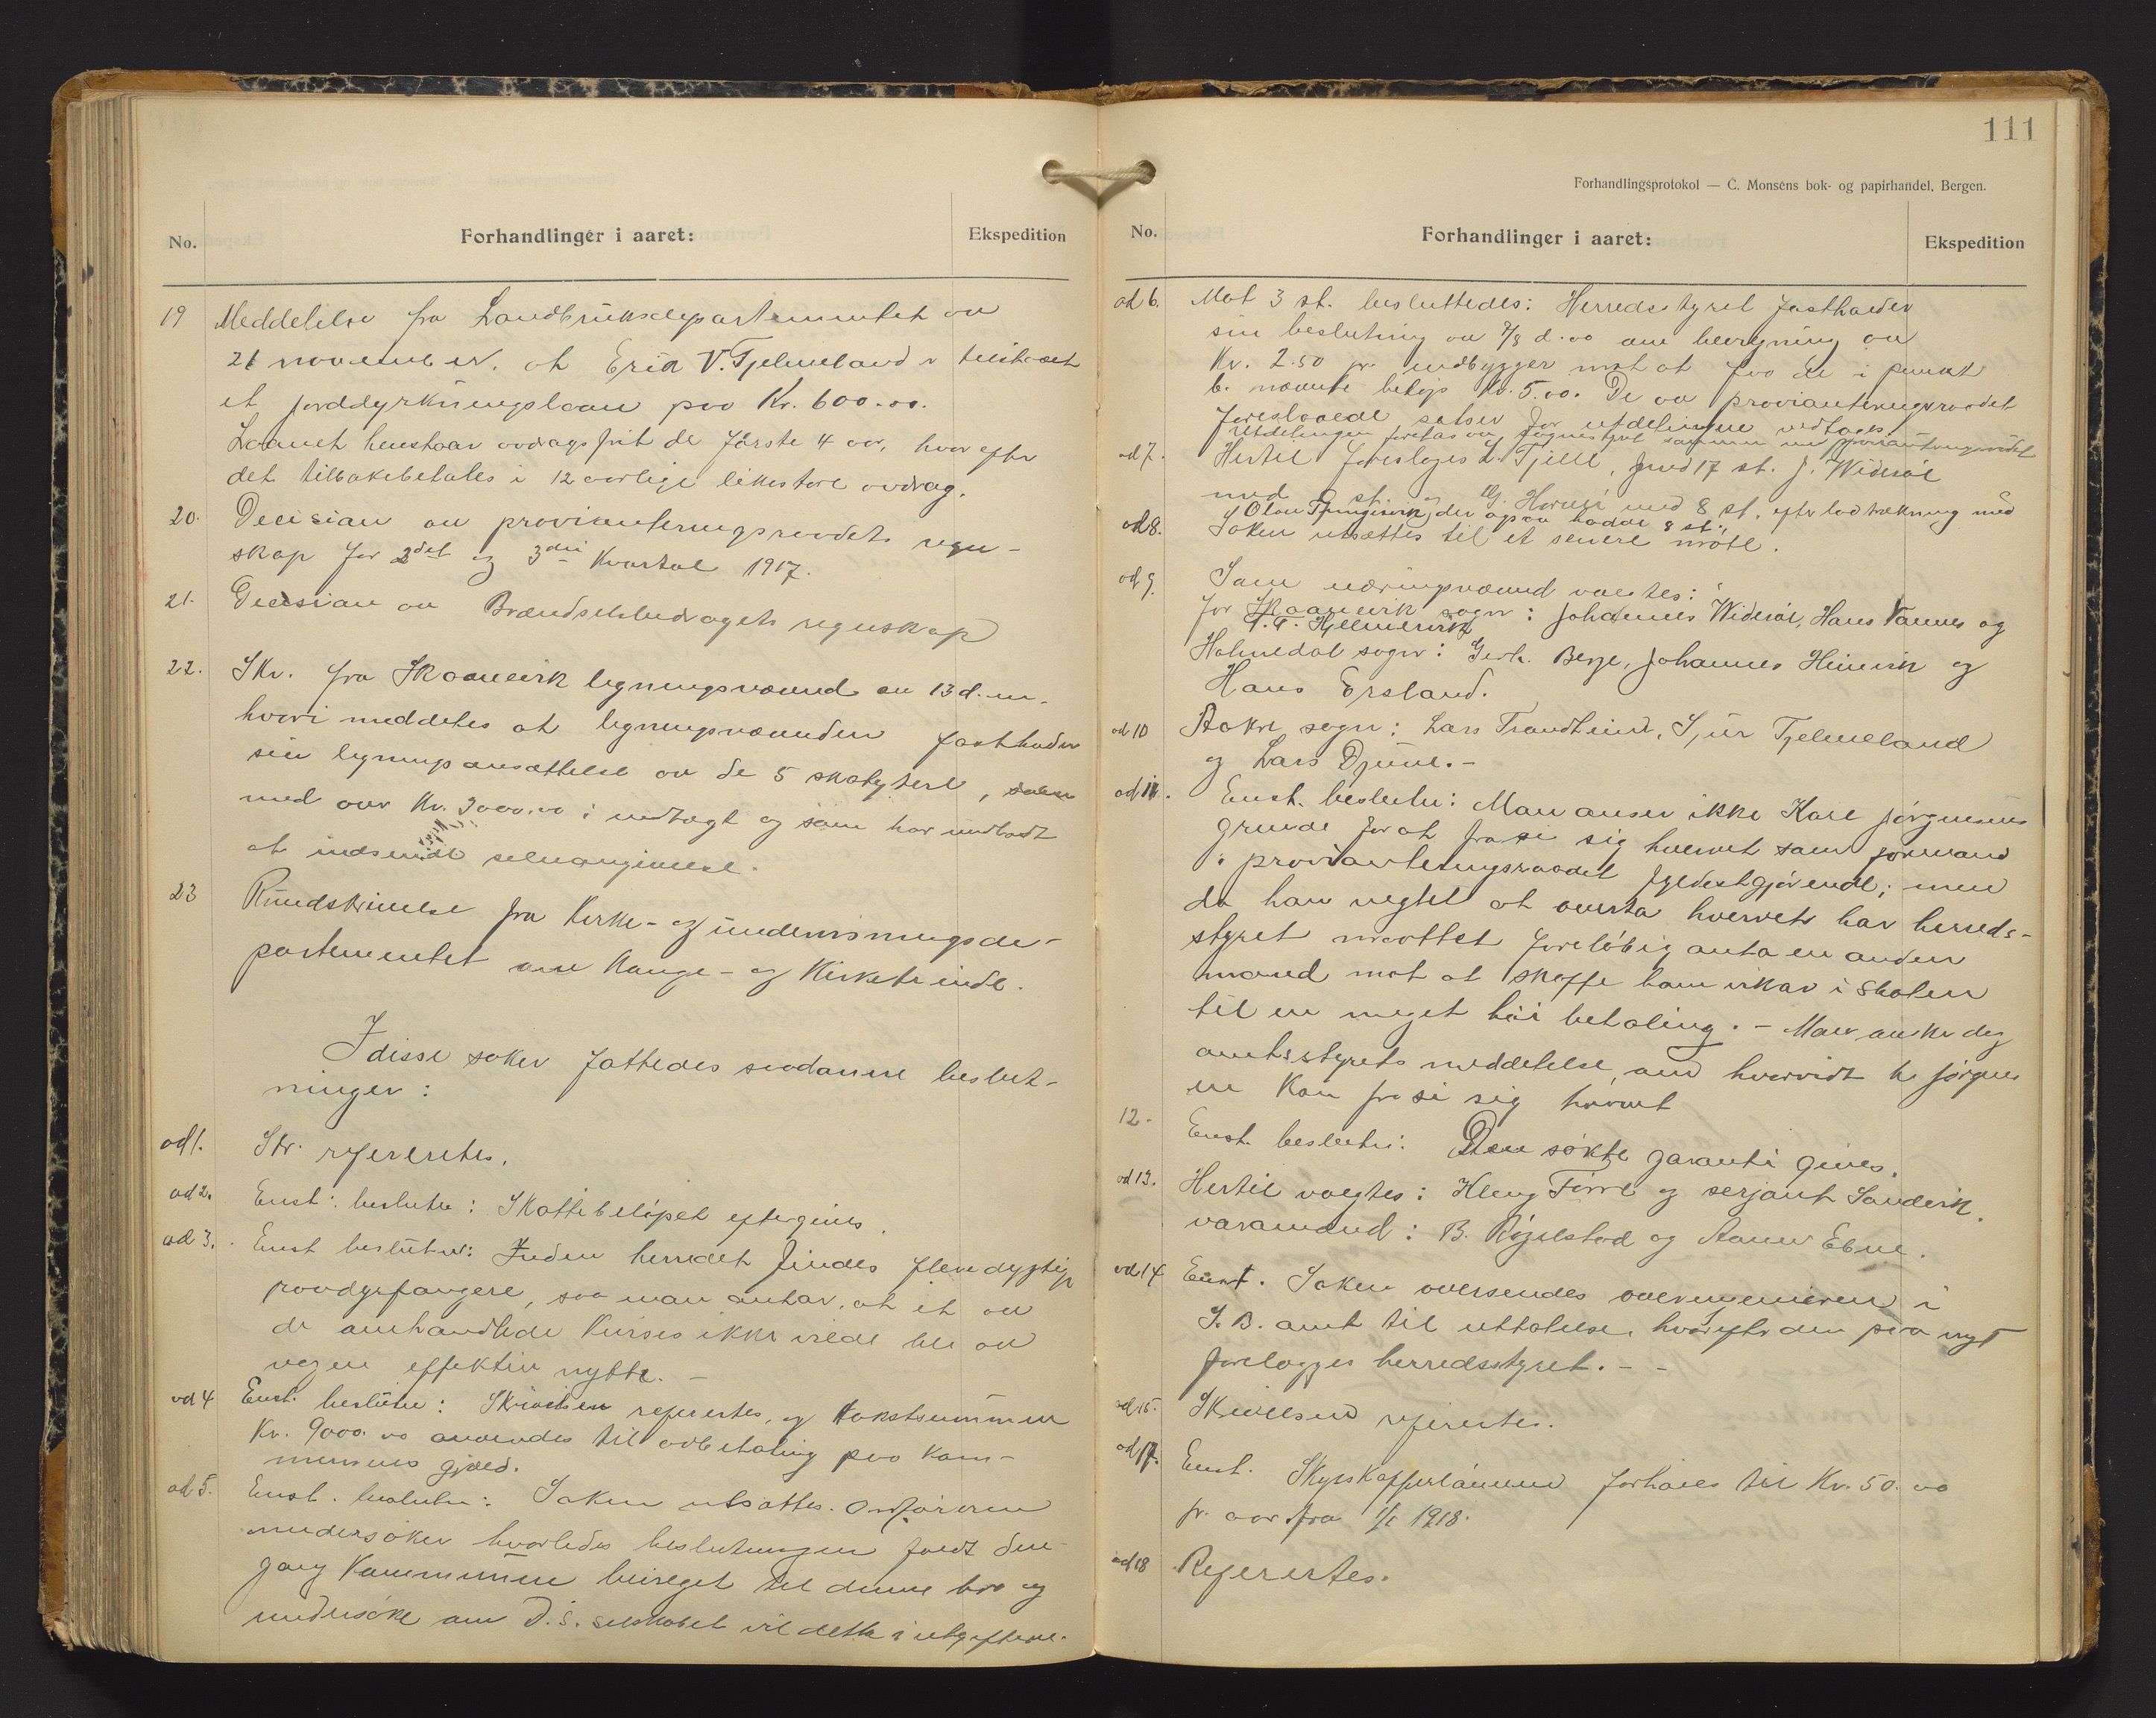 No.
Forhandlinger i aaret:
Ekspedition
19 Meddelelse fra Landbruksdepartementet av
21 november. at Erik V. Tjelmeland er tilstaaet
et jorddyrkningslaan paa Kr. 600.00.
Laanet henstaar avdragsfrit de første 4 aar, hvorefter
det tilbakebetales i 12 aarlige likestore avdrag.
20. Decision av provianteringsraadets regn-
skap for 2det og 3die Kvartal 1917.
21. Decision av Brændselsutvalgets regnskap
22. Skr. fra Skaanevik ligningsnævnd av 13 d.m.
hvori meddeles at ligningsnævnden fastholder
sin ligningsansættelse av de 5 skatytere,
med over Kr. 3000.00 i indtægt og som har undlatt
at indsende selvangivelse.
23 Rundskrivelse fra Kirke- og undervisningsde-
partementet om Konge- og Kirketiende.
I disse saker fattedes saadanne beslut-
ninger:
ad 1. Skr. refereretes.
ad 2. Enst: beslutn: Skattebeløpet eftergives.
ad 3. Enst beslutn: Inden herredet findes flere dygtige
rovdyrfangere, saa man antar, at et av
de omhandlede Kurses ikke vilde bli av
nogen effektiv nytte. —
ad 4 Enst. beslutn: Skrivelsen refereretes, og takstsummen
Kr. 9000.00 anvendes til avbetaling paa Kom-
munens gjæld.
ad 5. Enst. beslutn: Saken utsættes. Ordføreren
undersøker hvorledes beslutningen faldt den-
gang Kommunen bevilget til denne bro og
undersøke om D.S. selskabet vil delta i utgiftene.
111
Forhandlingsprotokol — C. Monsens bok- og papirhandel, Bergen.
No.
Forhandlinger i aaret:
Ekspedition
ad 6. Mot 3 st. besluttedes: Herredsstyret fastholder
sin beslutning av 7/8 d.aa om bevilgning av
Kr. 2.50 pr. indbygger mot at faa de i punkt
6. nævnte beløp Kr. 5.00. De av provianteringsraadet
foreslaaede satser for utdelingene vedtages.
Utdelingen foretas av sognestyret sammen med provianteringsraadet
ad 7. Hertil foresloges L. Tjelle, med 17 st. J. Widsøe
med st. og G. Hornsi med 8 st. efter lodtrækning med
Olav Tungesvik, der ogsaa hadde 8 st.
ad 8. Saken utsættes til et senere møte.
ad 9. Som næringsnævnd valgtes:
for Skaanevik sogn: Johannes Widsøe, Hans Vannes og
T. T. Hjelmervik
Holmedal sogn: Gerh. Berge, Johannes Heimvik og
Hans Ersland.
ad 10 Aakre sogn: Lars Trondheim, Sjur Tjelmeland
og Lars Djuve. —
ad 11. Enst. beslutn: Man anser ikke Karl Jørgensens
grunde for at frasi sig hvervet som formand
i provianteringsraadet fyldestgjørende; men
da han negtet at overta hvervet har herreds-
styret maattet foreløbig anta en anden
mand mot at skaffe ham vikar i skolen
til en meget høi betaling. — Man ønsker dog
amtsstyrets meddelelse, om hvorvidt hr Jørgens
en kan frasi sig hvervet
12. Enst. beslutn: Den søkte garanti gives.
ad 13. Hertil valgtes: Kleng Førre og serjant Sandvik.
varamænd: B. Røgelstad og Aamer Ebne.
ad 14 Enst. Saken oversendes overingeniøren i
S. B. amt til uttalelse, hvorefter den paa nyt
forelægges herredsstyret. — —
ad 15. Skrivelsen refereretes.
ad 17. Enst. Skysskafferlønnen forhøies til Kr. 50.00
pr. aar fra 1/1 1918.
ad 18 Refereretes.